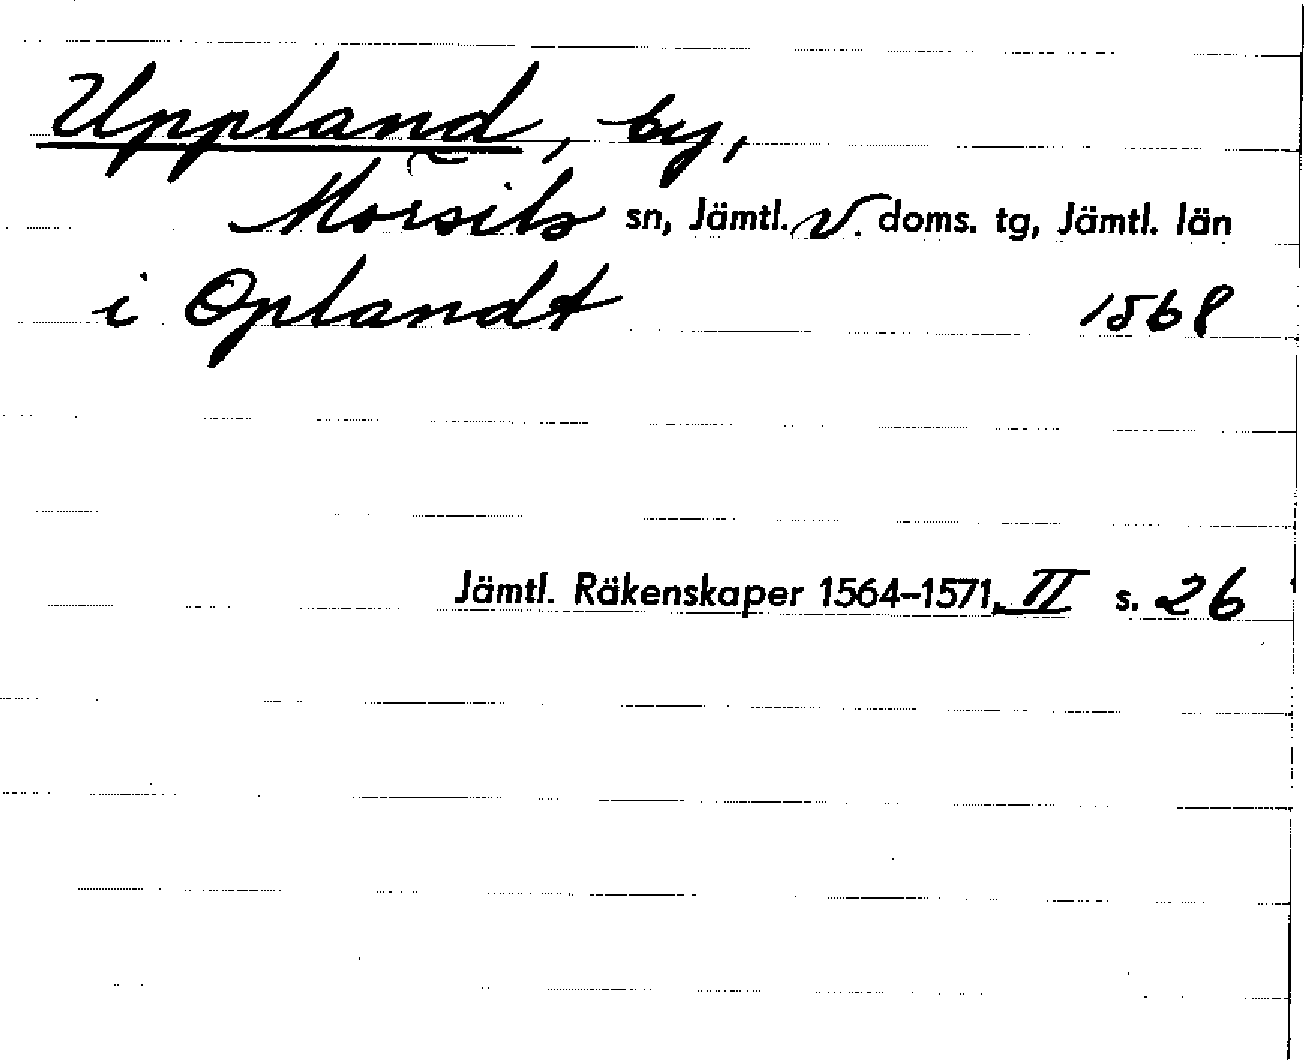 Uppland, by,
Mörsils sn, Jämtl. v. doms. tg, Jämtl. län
i Oplandt 1568
Jämtl. Räkenskaper 1564–1571, II s. 26